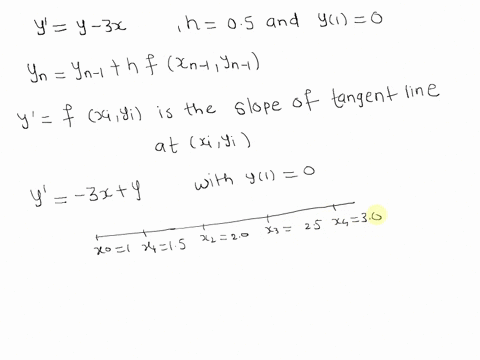 y' = y - 3x , h = 0.5 and y(1) = 0
yn = yn-1 + h f (xn-1, yn-1)
y' = f (xi, yi) is the slope of tangent line
at (xi, yi)
y' = -3x + y with y(1) = 0
x0 = 1 x1 = 1.5 x2 = 2.0 x3 = 2.5 x4 = 3.0